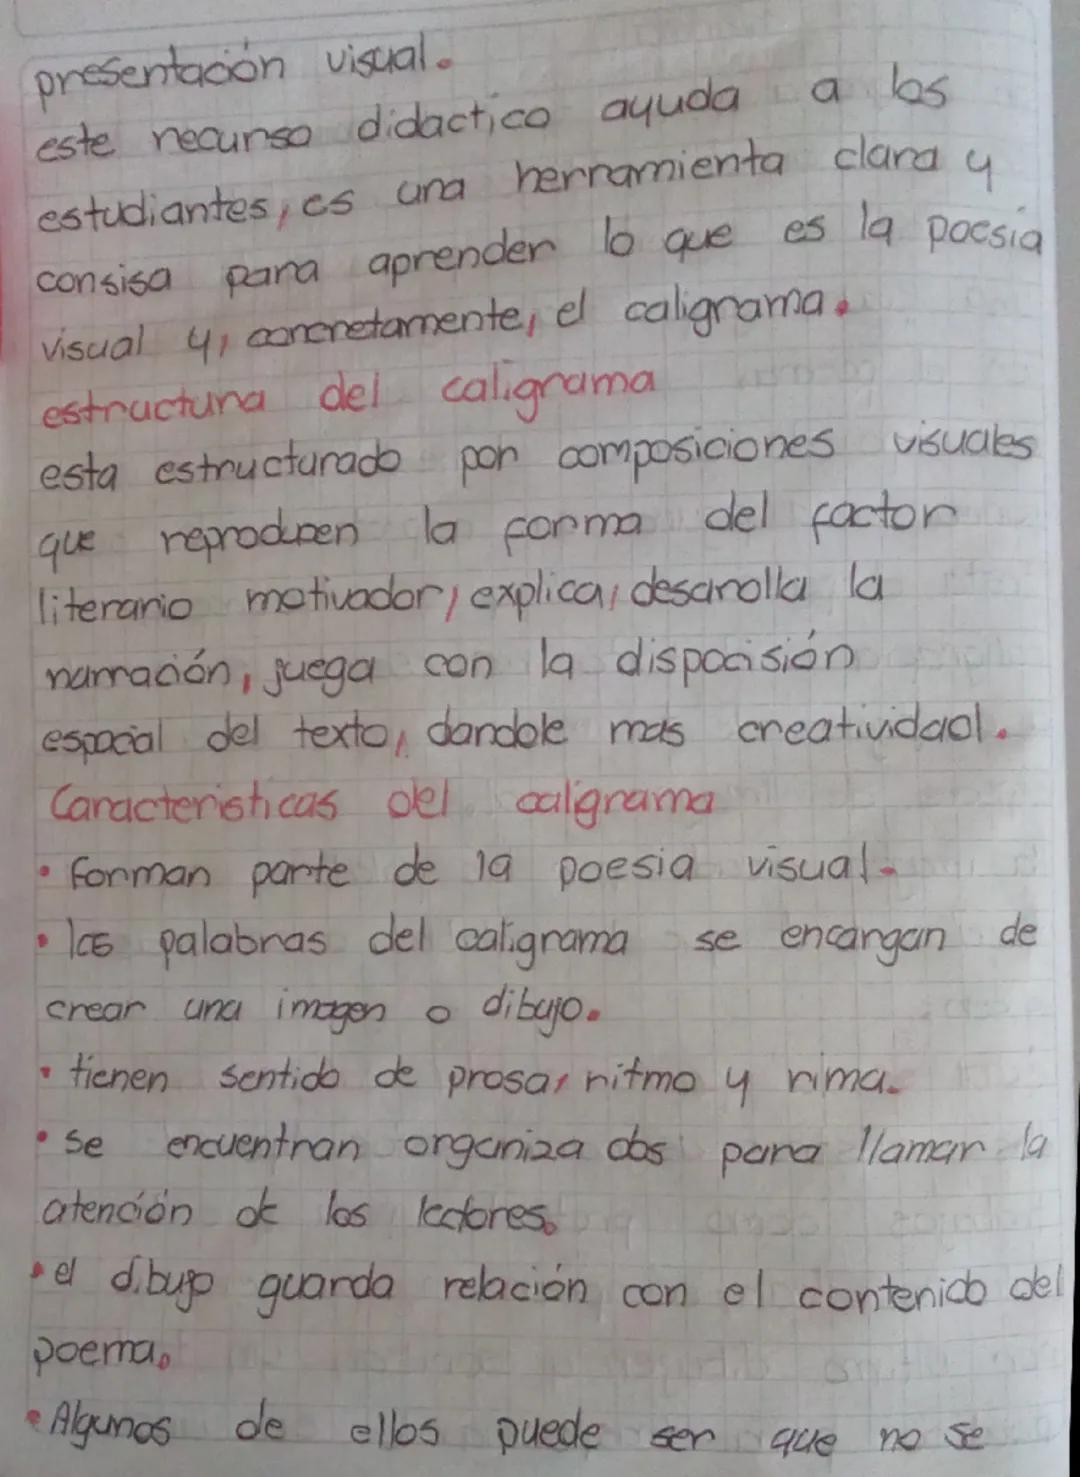 presentación visual.
este recurso didactico ayuda a los
estudiantes, es una herramienta clara y
consisa para aprender lo que es la poesia
visual y, concretamente, el caligrama.
estructura del caligrama
esta estructurado por composiciones visuales
que reproducen la forma del factor
literario motivador, explica, desarrolla la
narración, juega con la disposisión
espacial del texto, dandole mas creatividad.
Caracteristicas del caligrama
• Forman parte de la poesia visual.
• las palabras del caligrama se encargan de
crear una imagen o dibujo.
• tienen sentido de prosa, ritmo y rima.
• se encuentran organiza dos para llamar la
atención de los lectores.
• el dibujo guarda relación con el contenido del
poema.
• Algunos de ellos puede ser que no se